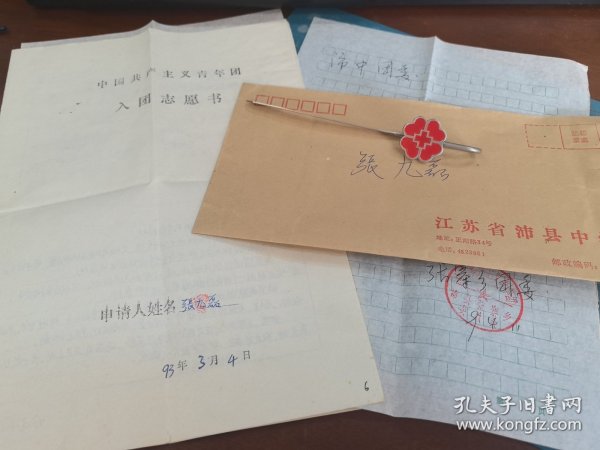 中国共产主义青年团
入团志愿书
申请人姓名 張九磊
93年3月4日
6
沛中团委
張九磊
江苏省沛县中
地址:正阳路34号
邮政编码:
团委
孔夫子旧书网
www.kongfz.com